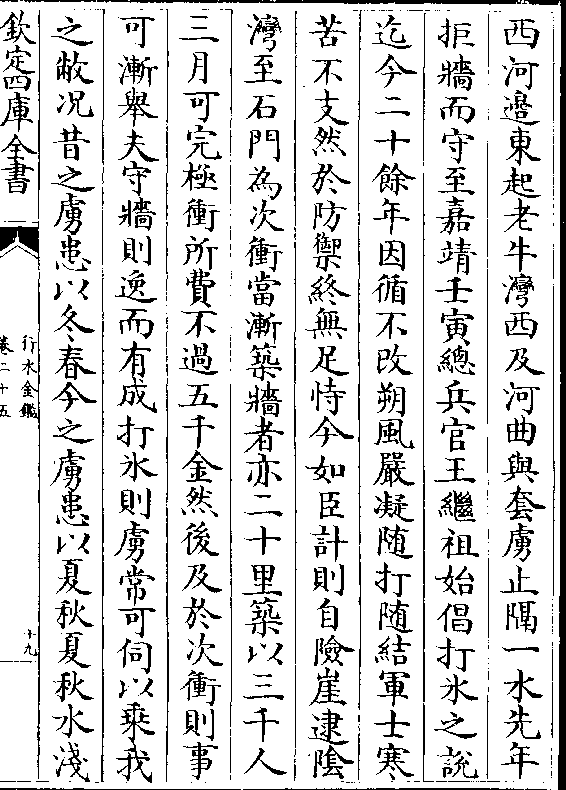 西河邉東起老牛灣西及河曲與套虜止隔一水先年
拒牆而守至嘉靖壬寅總兵官王繼祖始倡打氷之說
迄今二十餘年因循不改朔風嚴凝随打随結軍士寒
苦不支然於防禦終無足恃今如臣計則自險崖逮隂
灣至石門為次衝當漸築牆者亦二十里築以三千人
三月可完極衝所費不過五千金然後及於次衝則事
可漸舉夫守牆則逸而有成打氷則虜常可伺以乗我
之敝况昔之虜患以冬春今之虜患以夏秋夏秋水淺
欽定四庫全書
行水金鑑
卷二十五
十九